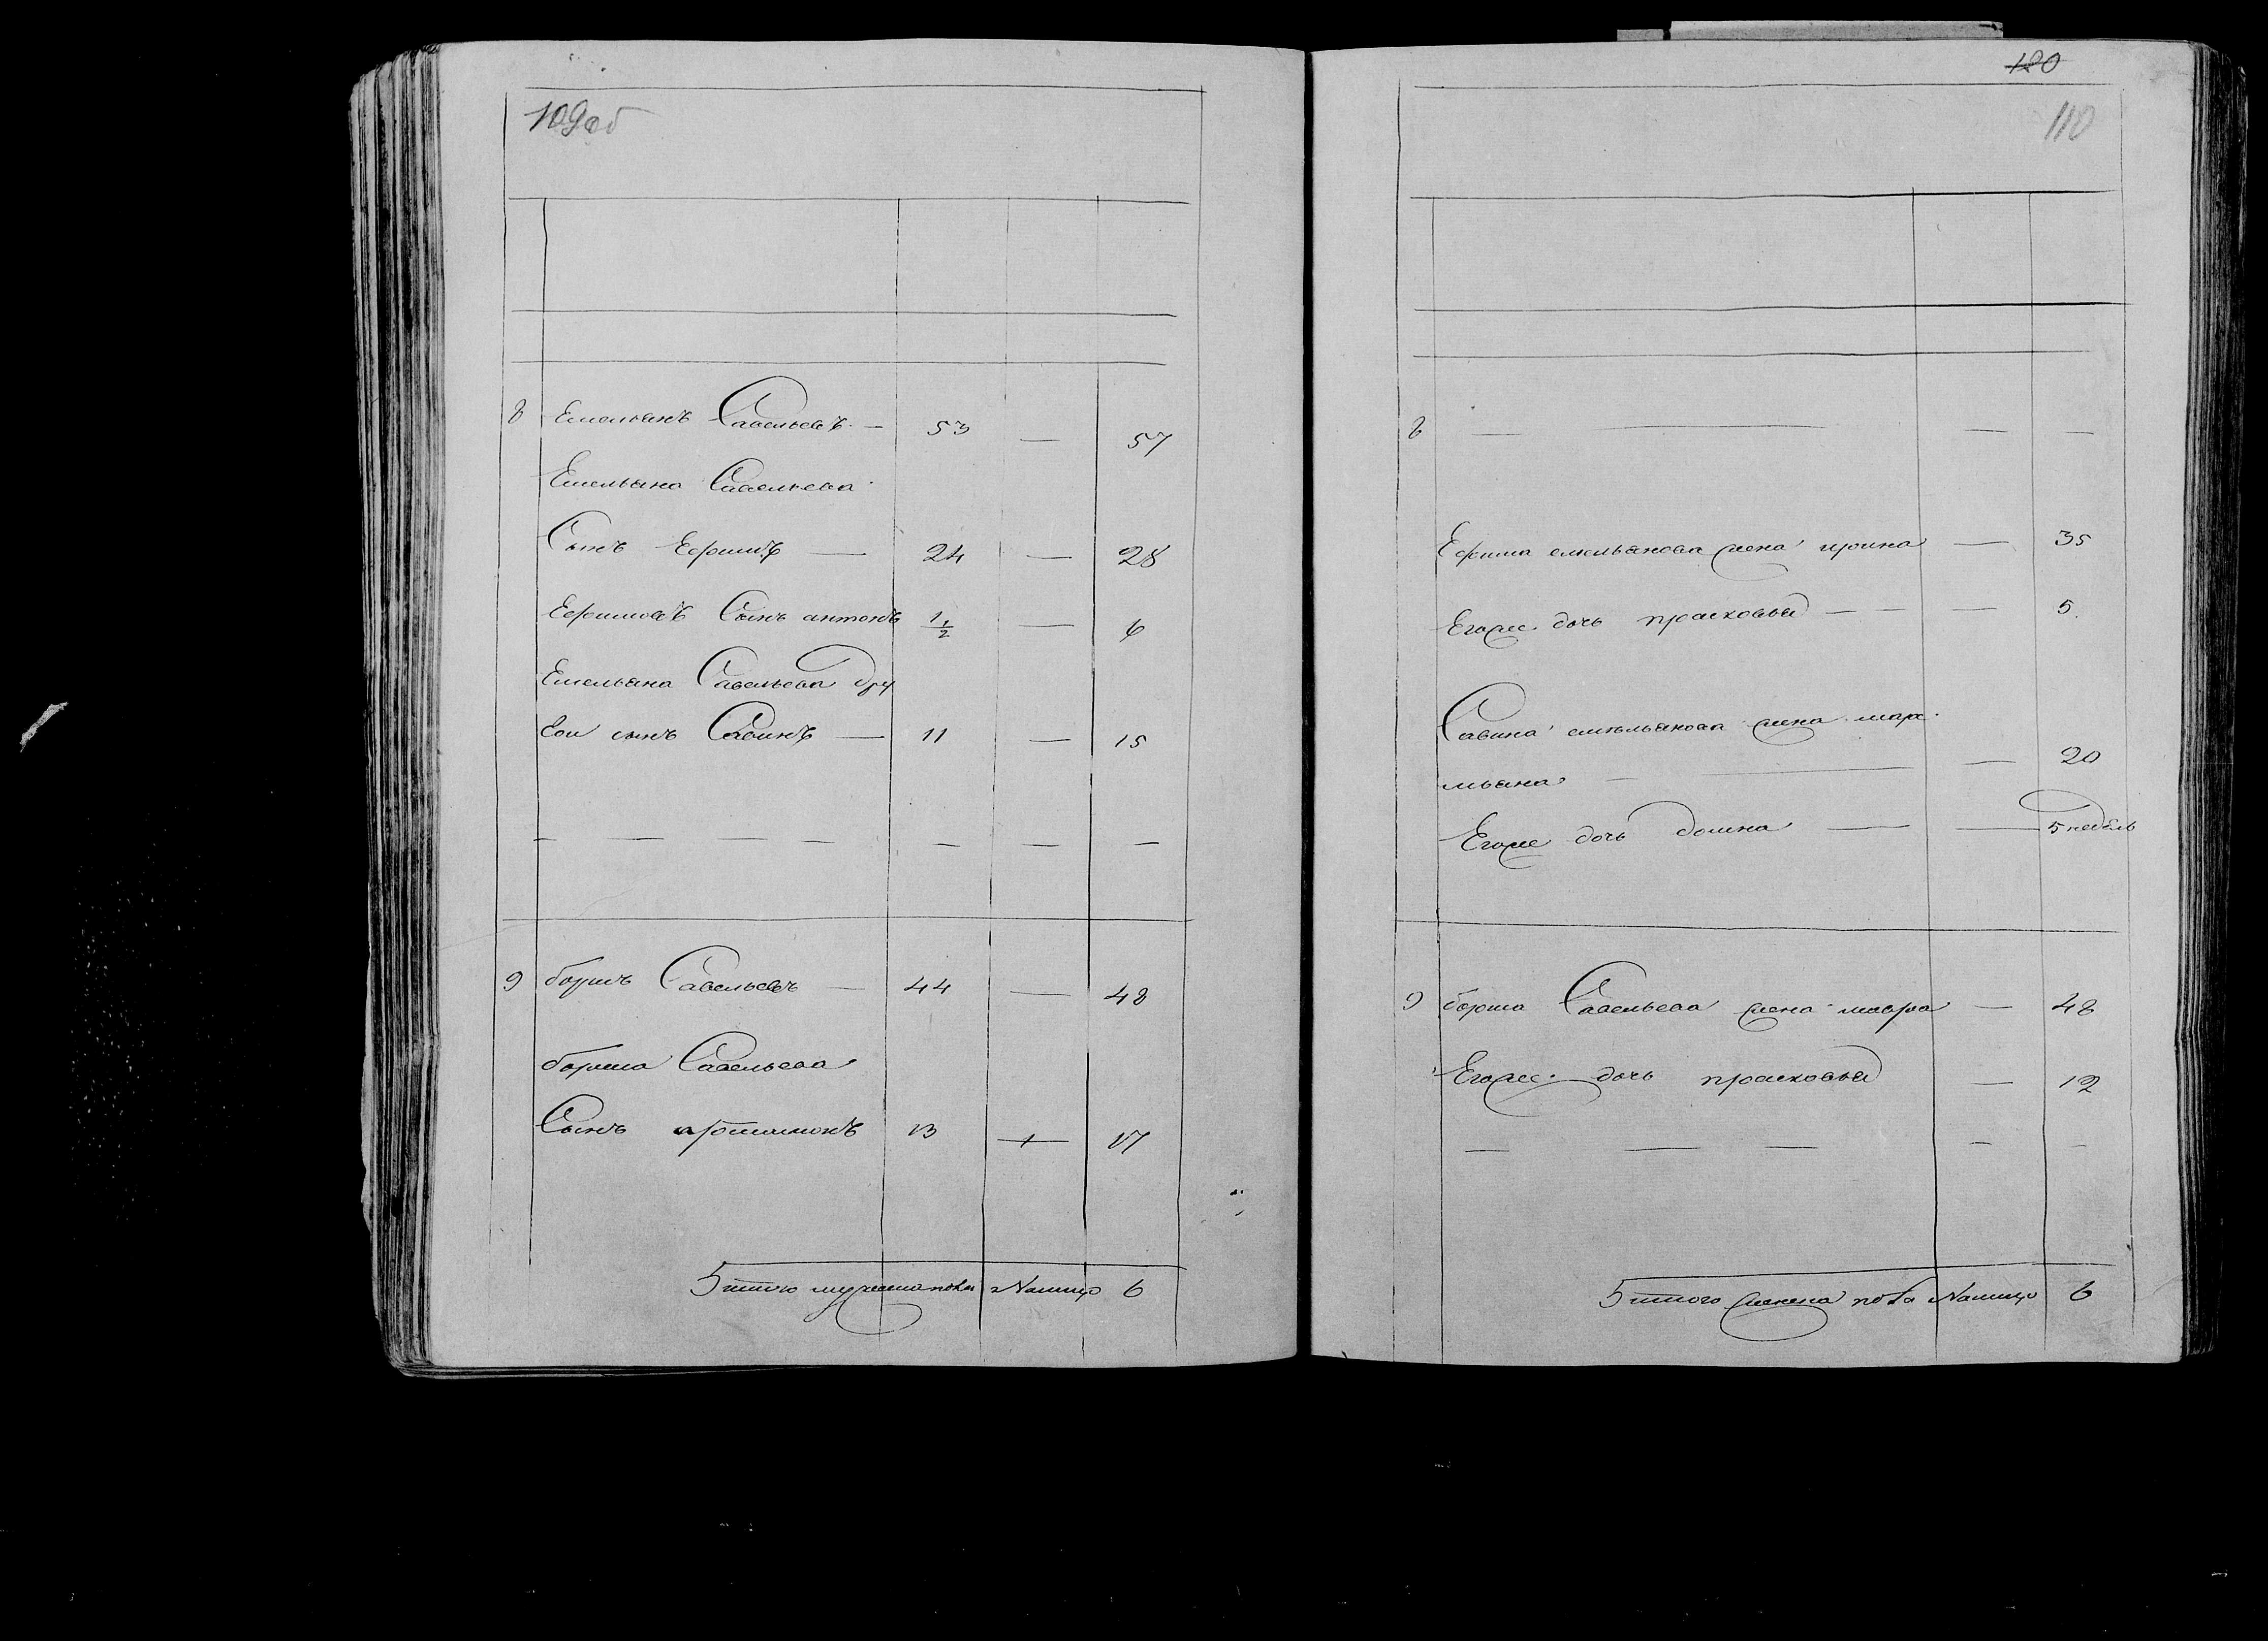 109об
8 Емельянъ Савельевъ — 53 — 57
Емельяна Савельева
Сынъ Ефимъ — 24 — 28
Ефимовъ Сынъ антонъ 1 1/2 — 6
Емельяна Савельева дру
гои сынъ Савинъ — 11 — 15
— — — — — — —
9 борисъ Савельевъ — 44 — 48
бориса Савельева
Сынъ артамонъ 13 — 17
итого мужеска пола Налицо 6
120
110
8 — — — —
Ефима емельянова жена ирина — 35
Егоже дочь прасковья — — — 5.
Савина емельянова жена мара
мьяна — — — 20
Егоже дочь домна — — 5 недель
9 бориса Савельева жена мавра — 48
Егоже дочь прасковья — 12
— — — — —
итого женска пола Налицо 6